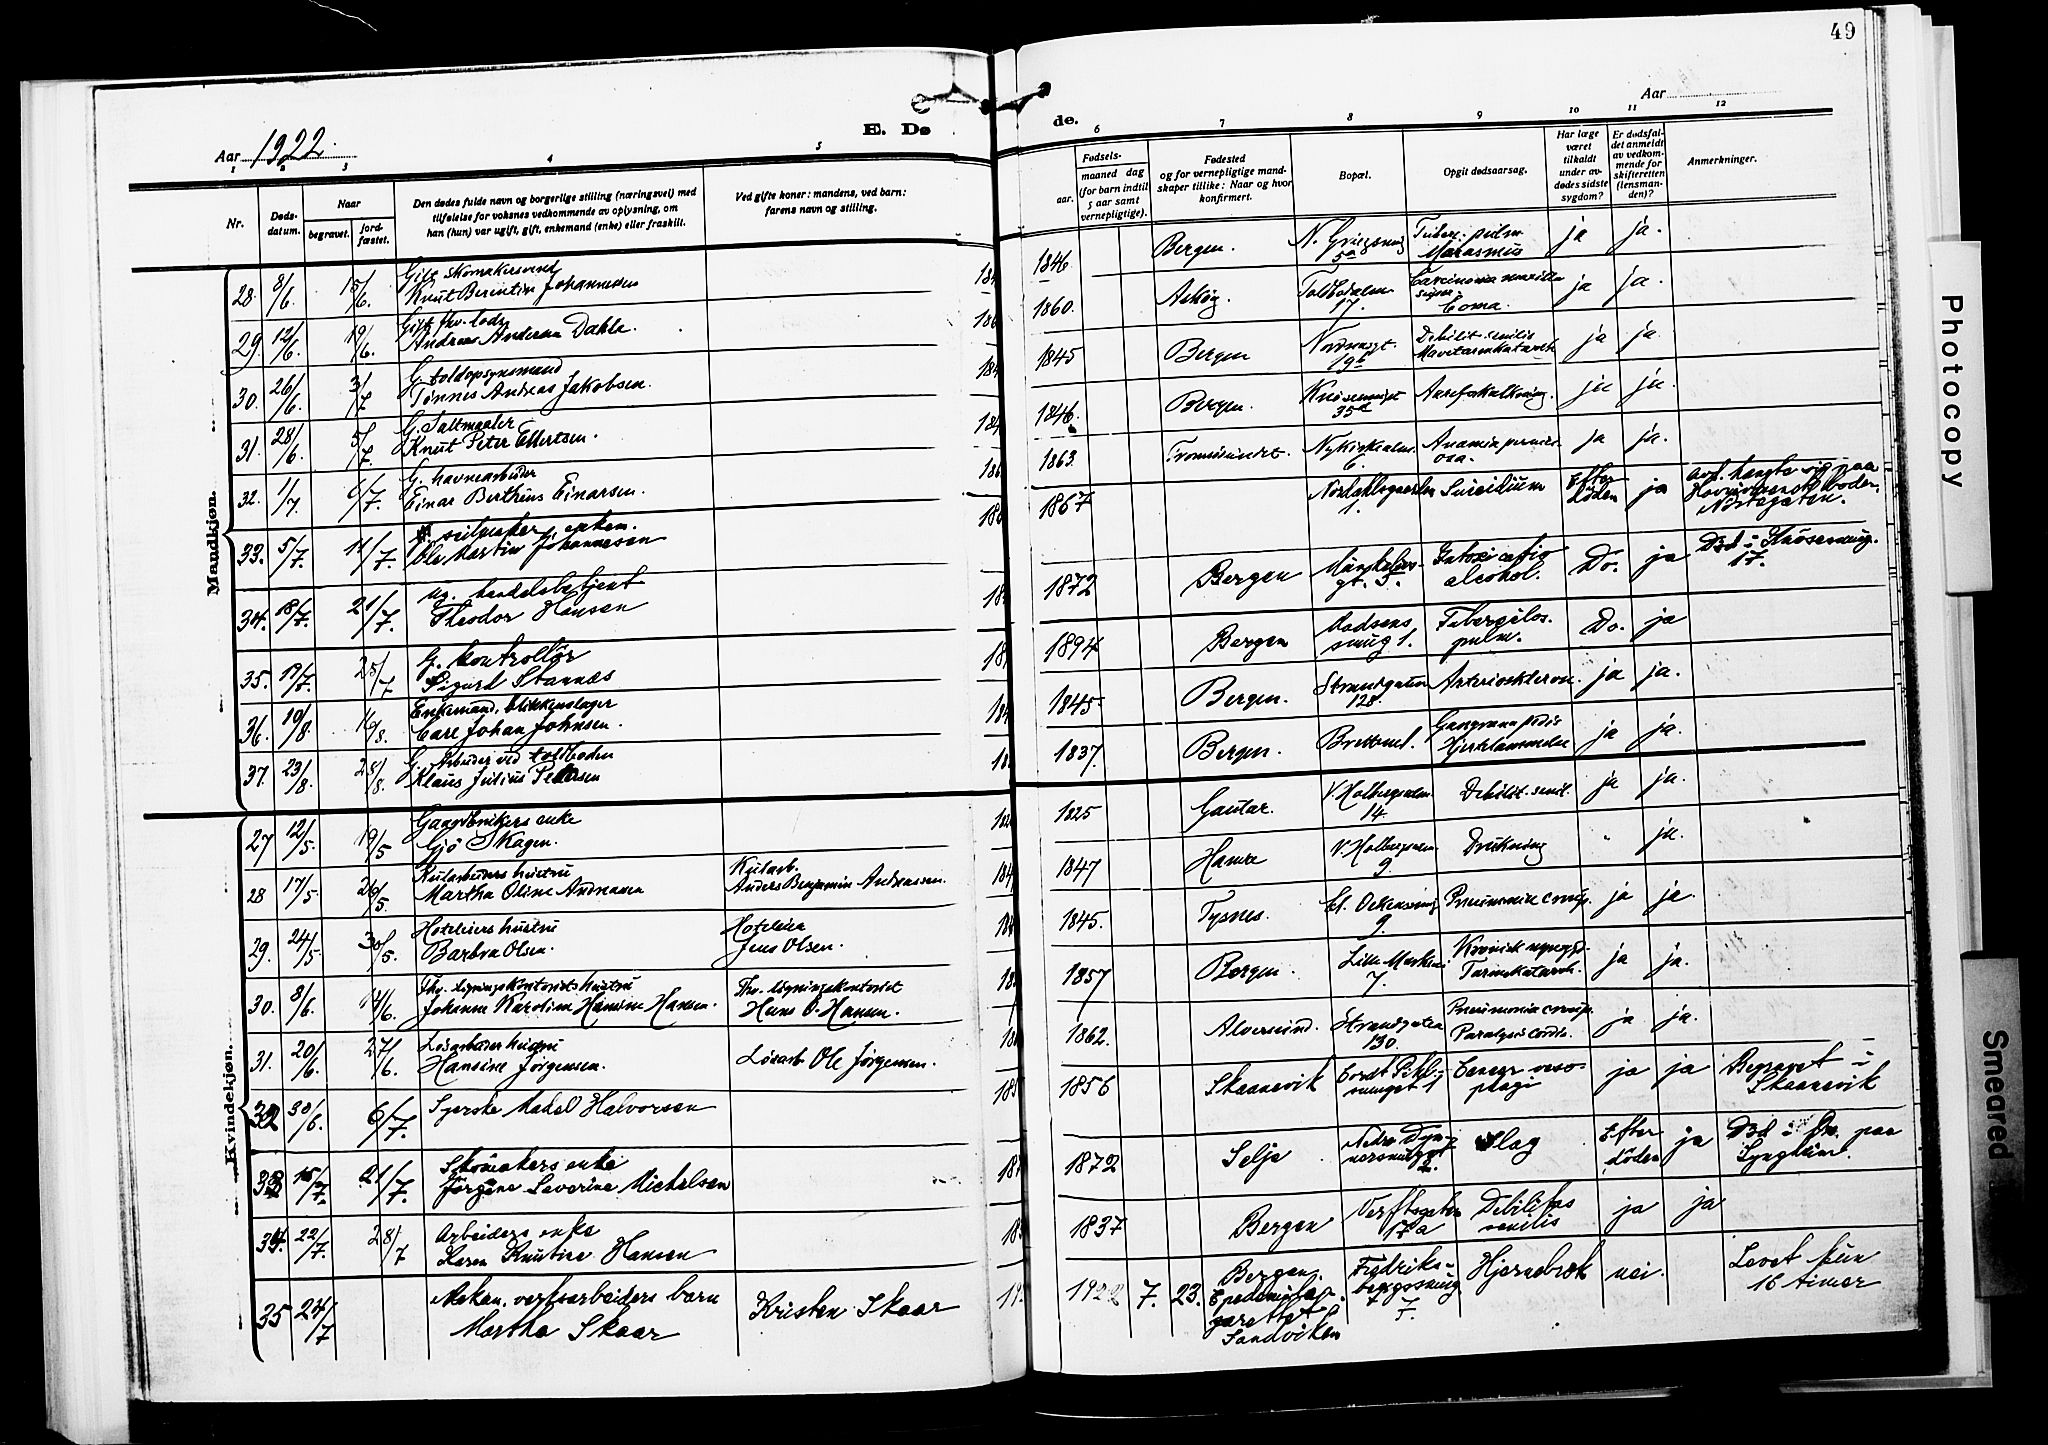 49
Aar 1922.
E. Dø
de.
Aar
1 2 3 4 5 6 7 8 9 10 11 12
Nr.
Døds-
datum.
Naar
begravet.
jord-
fæstet.
Den dødes fulde navn og borgerlige stilling (næringsvei) med
tilføielse for voksnes vedkommende av oplysning, om
han (hun) var ugift, gift, enkemand (enke) eller fraskilt.
Ved gifte koner: mandens, ved barn:
farens navn og stilling.
Fødsels-
aar.
maaned dag
(for barn indtil
5 aar samt
vernepligtige).
Fødested
og for vernepligtige mand-
skaper tillike: Naar og hvor
konfirmert.
Bopæl.
Opgit dødsaarsag.
Har læge
været
tilkaldt
under av-
dødes sidste
sygdom?
Er dødsfal-
det anmeldt
av vedkom-
mende for
skifteretten
(lensman-
den)?
Anmerkninger.
Mandkjøn.
28. 8/6 15/6. Gift skomakersvend
Knut Berentin Johannesen
1846. Bergen. N. Griegsmug 5a Tuberc. pulm Marasmus ja ja.
29. 12/6. 19/6. Gift fhv. lods
Andreas Andersen Dahle.
1860. Askøy. Toldbodalm. 17. Carcinoma maxilla super. Coma. ja ja.
30. 26/6. 3/7 G. toldopsynsmand
Tønnes Andreas Jakobsen.
1845 Bergen Nordnesgt. 19b Debilit. senilis Mavetarmkatarrh ja ja.
31. 28/6 5/7. G. Saltmaaler
Knut Peter Ellertsen.
1846. Bergen. Knøsesmuget 35a Aareforkalkning. ja ja.
32. 1/7. 6/7. G. havnearbeider
Einar Berthins Einarsen.
1863. Tromsøsundet. Nykirkealm. 6. Anamia pernici- osa. ja ja.
33. 5/7. 11/7. seilmaker, enkem.
Ole Martin Johannesen
1867 1. Suicidium Efter døden ja Avd. hængte sig paa
Nøstegaten.
34. 18/7. 21/7. ug. handelsbetjent
Theodor Hansen
1872 Bergen gt. 5. Intoxicatio alcohol. Do. ja Død i Knøsesmug.
17.
35. 17/7. 25/7 G. kontrollør
Sigurd Stannes
1894 Bergen Madsens smug 1. Tuberculos. pulm. Do. ja
36. 10/8. 16/8. Enkemand, blikkenslager
Carl Johan Johnsen.
1845 Bergen. Strandgaten 128. Arteriosklerose. ja ja.
37. 23/8. 28/8. G. Arbeider ved toldboden
Klaus Julius Petersen
1837. Bergen. Brettend. Gangræna pedis Hjertelammelse ja ja.
Kvindekjøn.
27 12/5. 19/5 Gaardbrukers enke
Gjø Skagen.
1825 Gautar. V. Holbergsalm. 14. Debilit. senil. ja ja.
28 17/5 26/5. Kularbeiders hustru
Martha Oline Andreasen
Kularb.
Anders Benjamin Andreassen.
1847 Hamre V. Holbergsalm. 9. Drukning " ja.
29. 24/5. 30/5. Hoteleiers hustru
Barbra Olsen.
Hoteleier
Jens Olsen.
1845. Tysnes. 9. Pneumonia croup. ja ja.
30. 8/6. 14/6. Fhv. ligningskontorists hustru
Johanne Karoline Hansine Hansen.
Fhv. ligningskontorist
Hans O. Hansen.
1857 Bergen. Lille Markevei 7. Kronisk Tarmkatarrh. ja ja.
31. 20/6. 27/6. Løsarbeiders hustru
Hansine Jørgensen.
Løsarb. Ole Jørgensen.
1862. Alversund. Strandgaten 130. Pneumonia croup. Paralysis cordis. ja ja.
32 30/6. 6/7. Syerske Madel Halvorsen
1856 Skaanevik Cordt Pihl- smuget 1 Cancer oeso- phagi ja ja Begravet i
Skaanevik
33 15/7. 21/7. Skomakers enke
Jørgine Severine Michelsen
1872 Selje Nedre Dyn- nersmuget 2. Slag Efter døden ja Død i paa
Lyngheim.
34. 22/7. 28/7 Arbeiders enke
Karen Knutine Hansen
1837 Bergen Verftsgaten 17a Debilitas senilis ja ja
35 24/7 Mekan. verksarbeiders barn
Martha Skaar
Kristen Skaar
1922 7. 23. Bergen. Epedemila- zarettet i Sandviken Fredriks- bergssmug 7. Hjernebrok nei. Levet kun
16 timer
Photocopy
Smeared